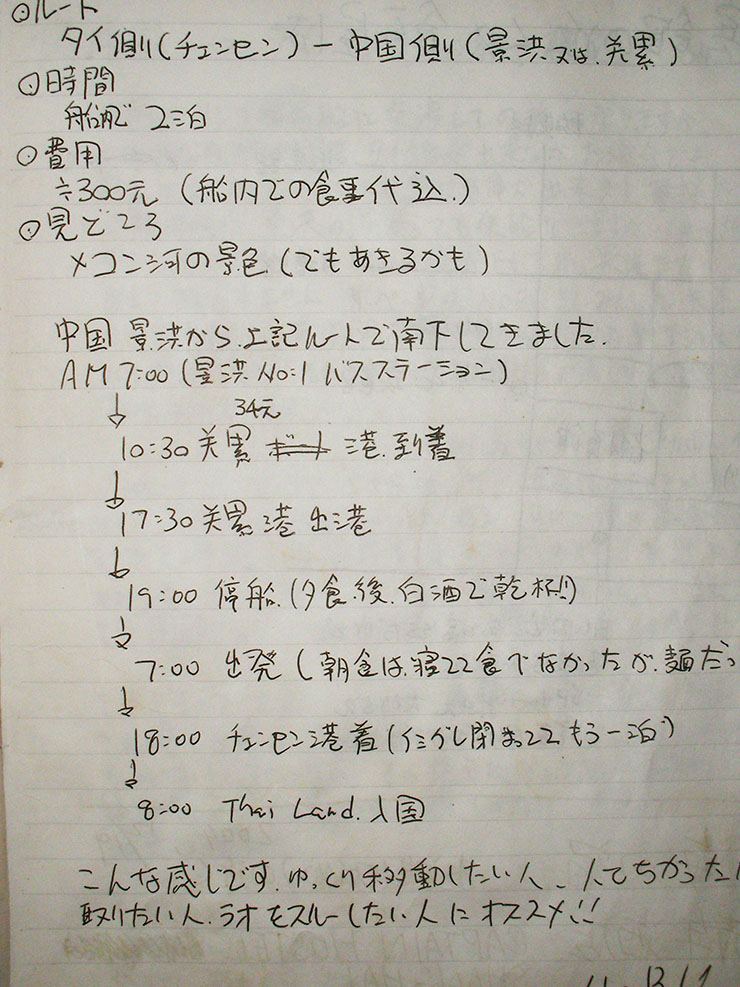 ⊙ルート
タイ側(チェンセン)ー中国側(景洪又は、关累)
⊙時間
船内で 2泊
⊙費用
≒300元 (船内での食事代込。)
⊙見どころ
メコン河の景色(でもあきるかも)
中国 景洪から、上記ルートで南下してきました。
AM7:00(景洪No:1 バスステーション)
↓ 34元
10:30 关累 港、到着
↓
17:30 关累港 出港
↓
19:00 停船、(夕食後、白酒で乾杯!!)
↓
7:00 出発 (朝食は、寝てて食べなかったが、麺だっ
↓
18:00 チェンセン港着(イミグレ閉まっててもう一泊)
↓
8:00 Thai Land、入国
こんな感じです、ゆっくり移動したい人、人とちがった
取りたい人、ラオをスルーしたい人にオススメ!!